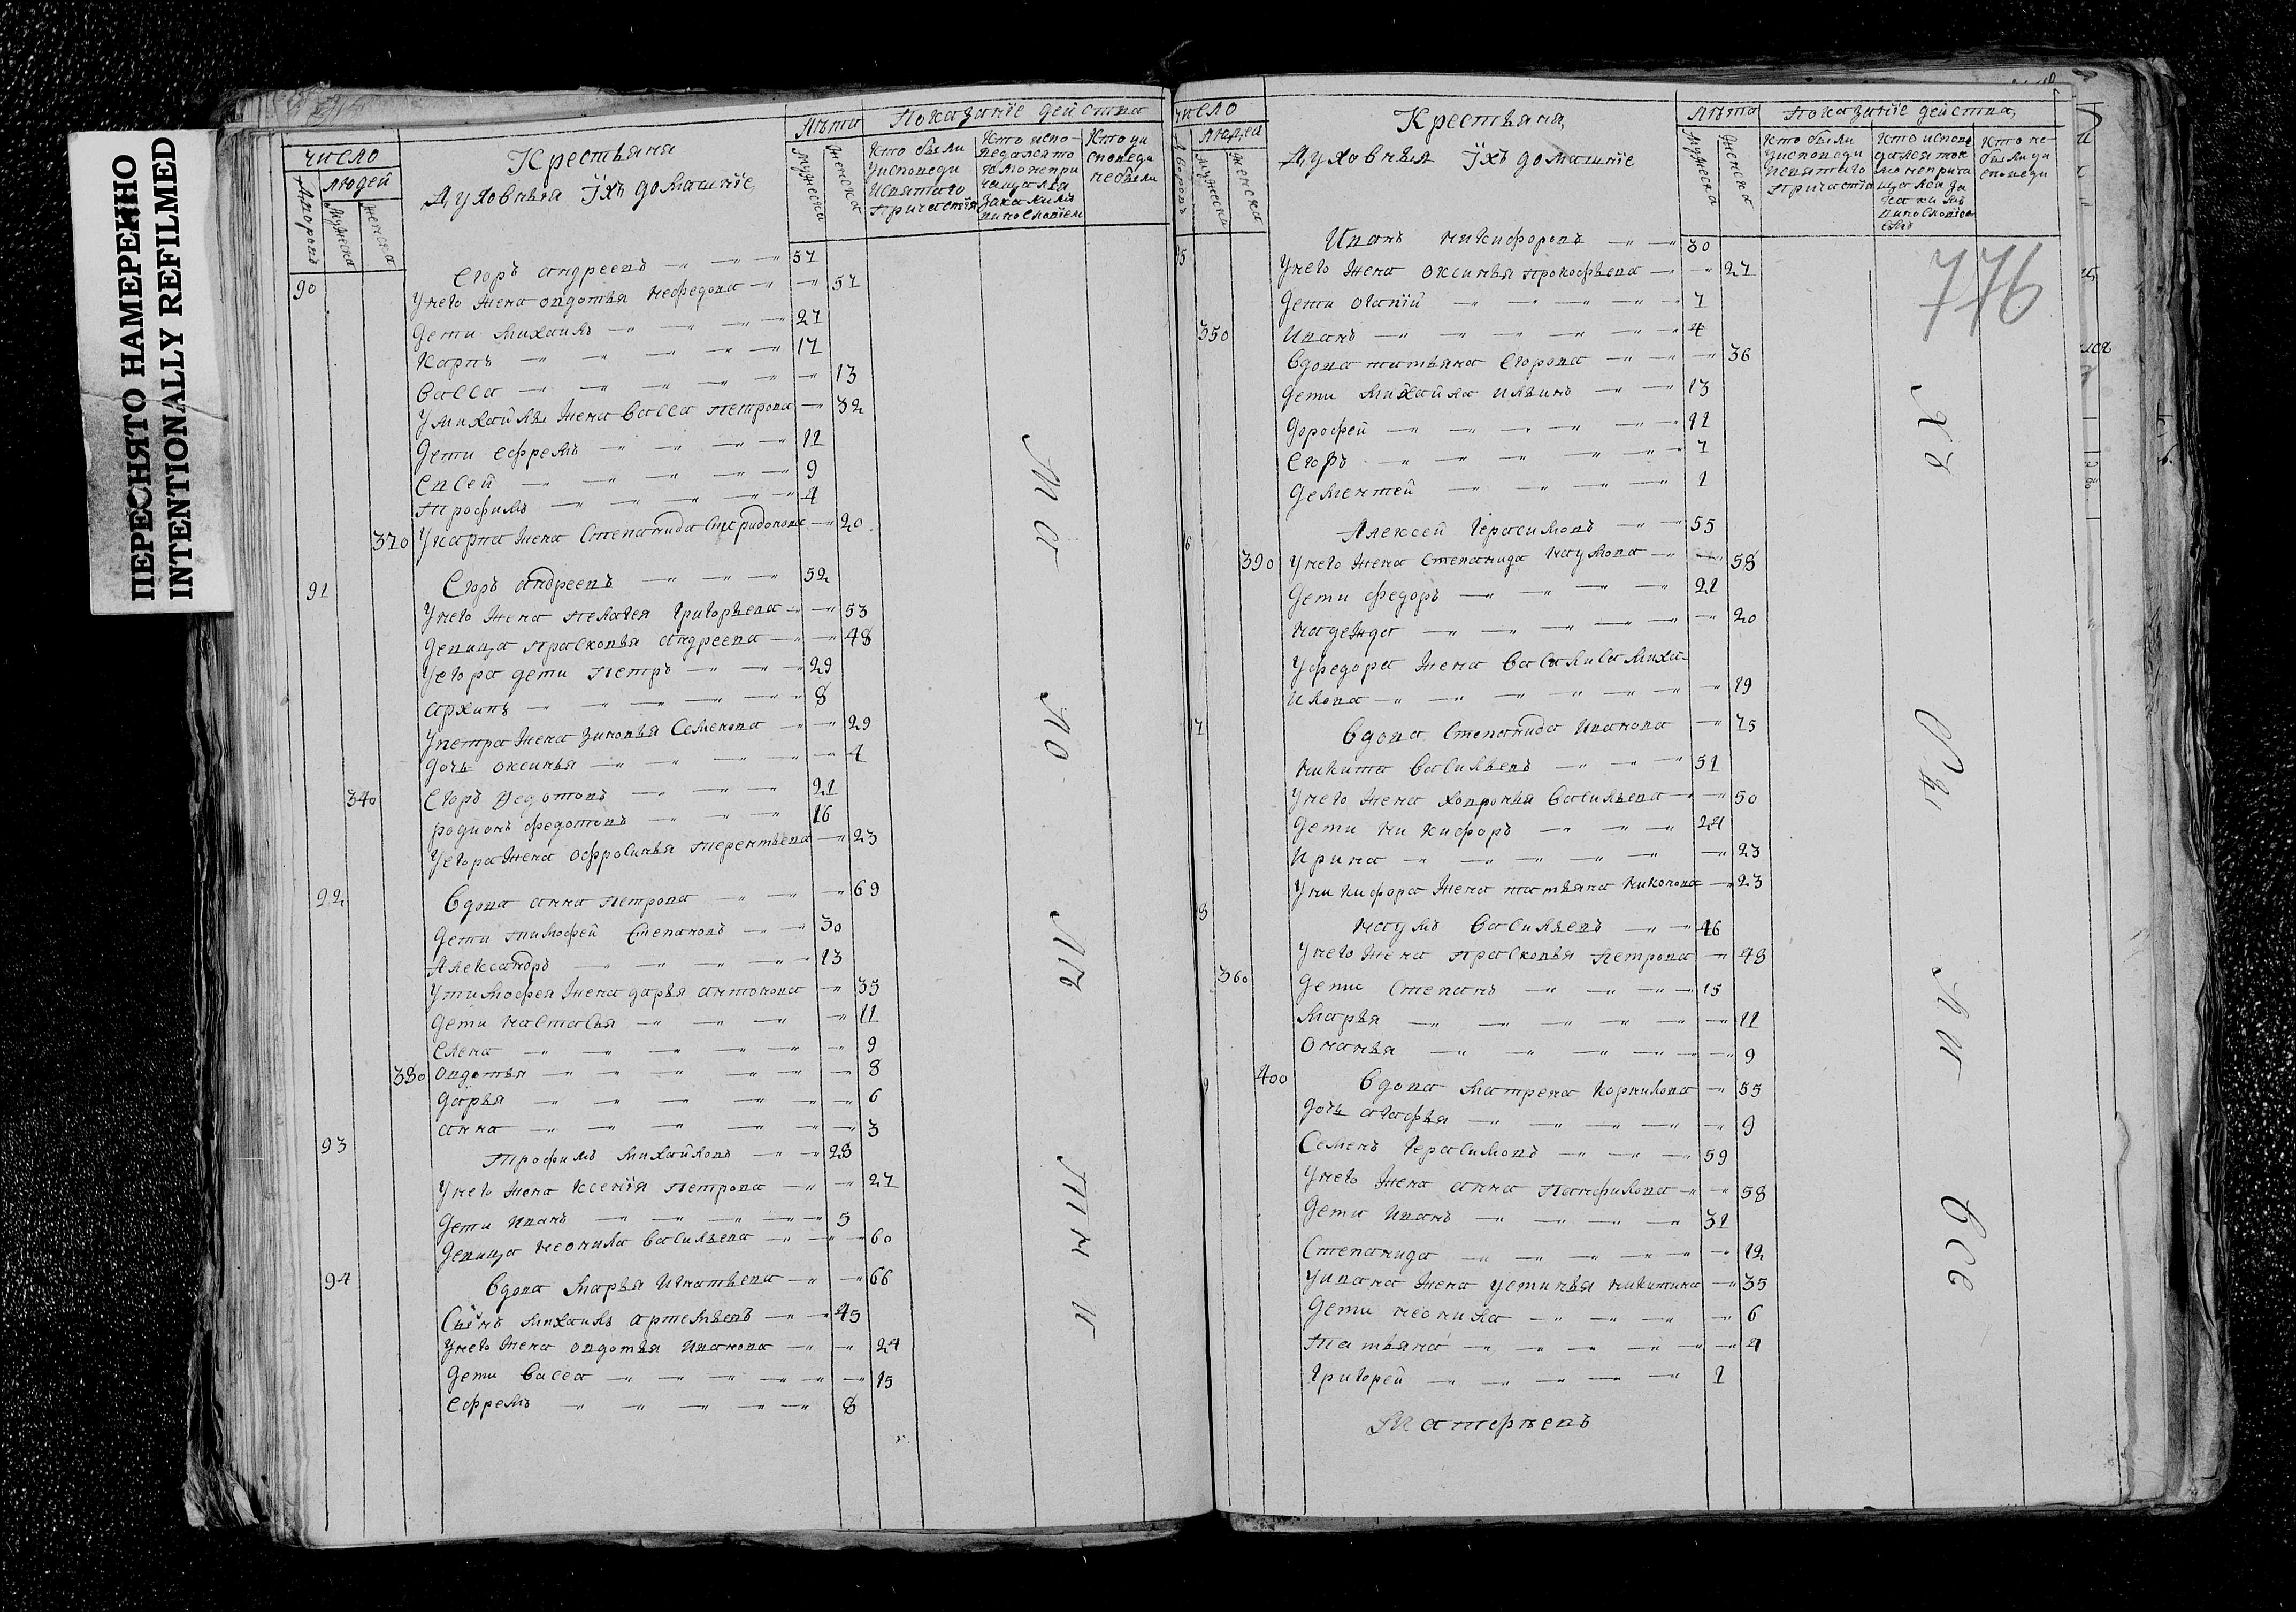 ПЕРЕСНЯТО НАМЕРЕННО
INTENTIONALLY REFILMED
число
людей
дворовъ
мужеска
женска
Крестьяня
Духовныя ихъ домашніе
лѣта
мужеска
женска
Показаніе действа
Кто были
уисповеди
исвятаго
причастія
Кто испо
ведался то
кмо непри
чащался
за какимъ
винословіем
Кто уи
споведи
небыли
90 Егоръ андреевъ 57
Унего жена овдотья нефедова 57
дети михаилъ 27
Карпъ 17
васса 13
Умихайлы жена васса петрова 32
дети ефремъ 11
Евсей 9
трофимъ 4
370 Укарпа жена Степанида Спиридонова 20
91 Егоръ андреевъ 52
Унего жена пелагея григорьева 53
девица прасковья андреева 48
Уегора дети петръ 29
архипъ 8
Упетра жена зиновья Семенова 29
дочь оксинья 4
340 Егоръ федотовъ 21
родионъ федотовъ 16
Уегора жена офросинья терентьева 23
92 вдова анна петрова 69
дети тимофей степановъ 30
Александръ 13
Утимофея жена дарья антонова 35
дети настасья 11
Елена 9
380 овдотья 8
дарья 6
анна 3
93 трофимъ михайловъ 28
Унего жена ксенія петрова 27
дети иванъ 5
девица неонила васильева 60
94 вдова марья игнатьева 66
Сынъ михаилъ артемьевъ 45
Унего жена овдотья иванова 24
дети васса 15
ефремъ 8
число
людей
дворовъ
мужеска
женска
Крестьяня
Духовныя ихъ домашніе
лѣта
мужеска
женска
показаніе действа
Кто были
уисповеди
исвятаго
причастія
Кто испов
дался ток
мо неприча
щался за
каким
винословіе
Кто не
были уи
споведи
776
5 Иванъ никифоровъ 30
Унего жена оксинья прокофьева 27
дети 7
350 Иванъ 4
вдова татьяна Егорова 36
дети михайла ильинъ 13
дорофей 11
Егоръ 7
дементей 1
6 Алексей герасимовъ 55
390 Унего жена степанида наумова 58
дети федоръ 21
надежда 20
Уфедора жена василиса миха
илова 19
7 вдова степанида иванова 75
никита васильевъ 51
Унего жена ховронья васильева 50
дети никифоръ 24
Ирина 23
Уникифора жена татьяна никонова 23
8 наумъ васильевъ 46
Унего жена прасковья петрова 48
360 дети степанъ 15
марья 11
онанья 9
9 400 вдова матрена корнилова 55
дочь агафья 9
Семенъ герасимовъ 59
Унего жена анна панфилова 58
дети иванъ 31
степанида 12
Уивана жена устинья никитина 35
дети неонила 6
татьяна 4
григорей 1
Матфѣевъ